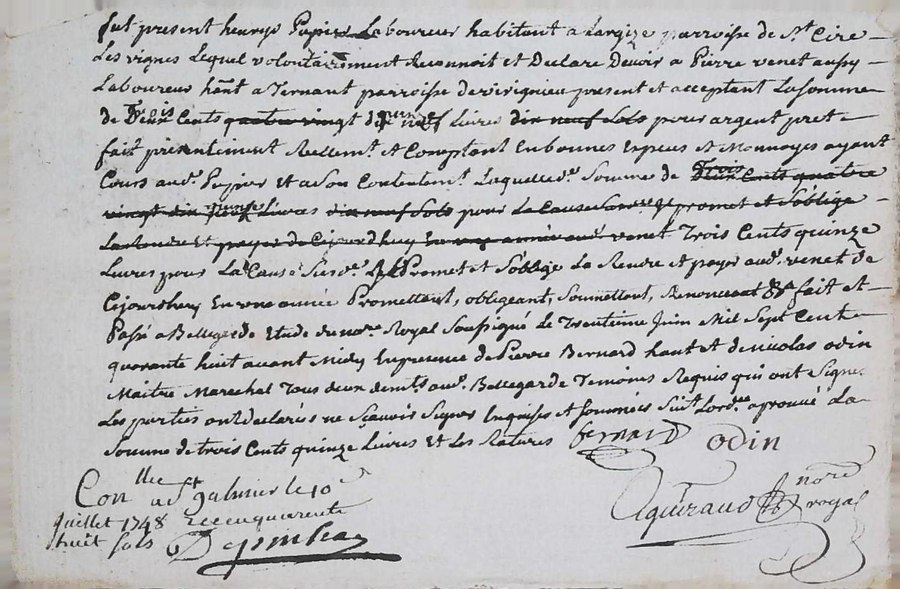 fut present henrys Papier Laboureur habitant a Largize parroisse de St. Cire
Les vignes Lequel volontairement Reconnoit et Declare Devoir a Pierre venet aussy
Laboureur hant a Ternant parroisse de virignieu present et acceptant La somme
de Trois Cents quatre vingt quinze Livres dix neuf sols pour argent pret
fait présentement Réellemt. et Comptant En bonnes Especes et Monnoyes ayant
Cours aud. Papier Et a son Contentemt. Laquelle de. somme de Trois Cents quatre
vingt dix quinze Livres dix neuf sols pour La Cause promet et s'oblige
La Rendre Et payer de Cejourdhuy En une année aud. venet Trois Cents quinze
Livres pour La Cause Susde. Promet et s'oblige La Rendre et payer aud. venet de
Cejourdhuy En une année Promettant, obligeant, Soumettant, Renonceant &a fait et
Passé a Bellegarde Etude du nore. Royal Soussigné Le Trentieme Juin Mil Sept Cent
quarante huit avant Midy En presence de Pierre Bernard hant et de nicolas odin
Maitre Marechel Tous deux demts. aud. Bellegarde Temoins Requis qui ont Signe
Les parties ont declarés ne Sçavoir Signer Enquises et Sommées Suit Lordce aprouvé La
Somme de trois Cents quinze Livres Et Les Ratures Bernard odin
Conllee a St galmier le 10e
juillet 1748 receu quarente
huit sols
Aguiraud nore royal